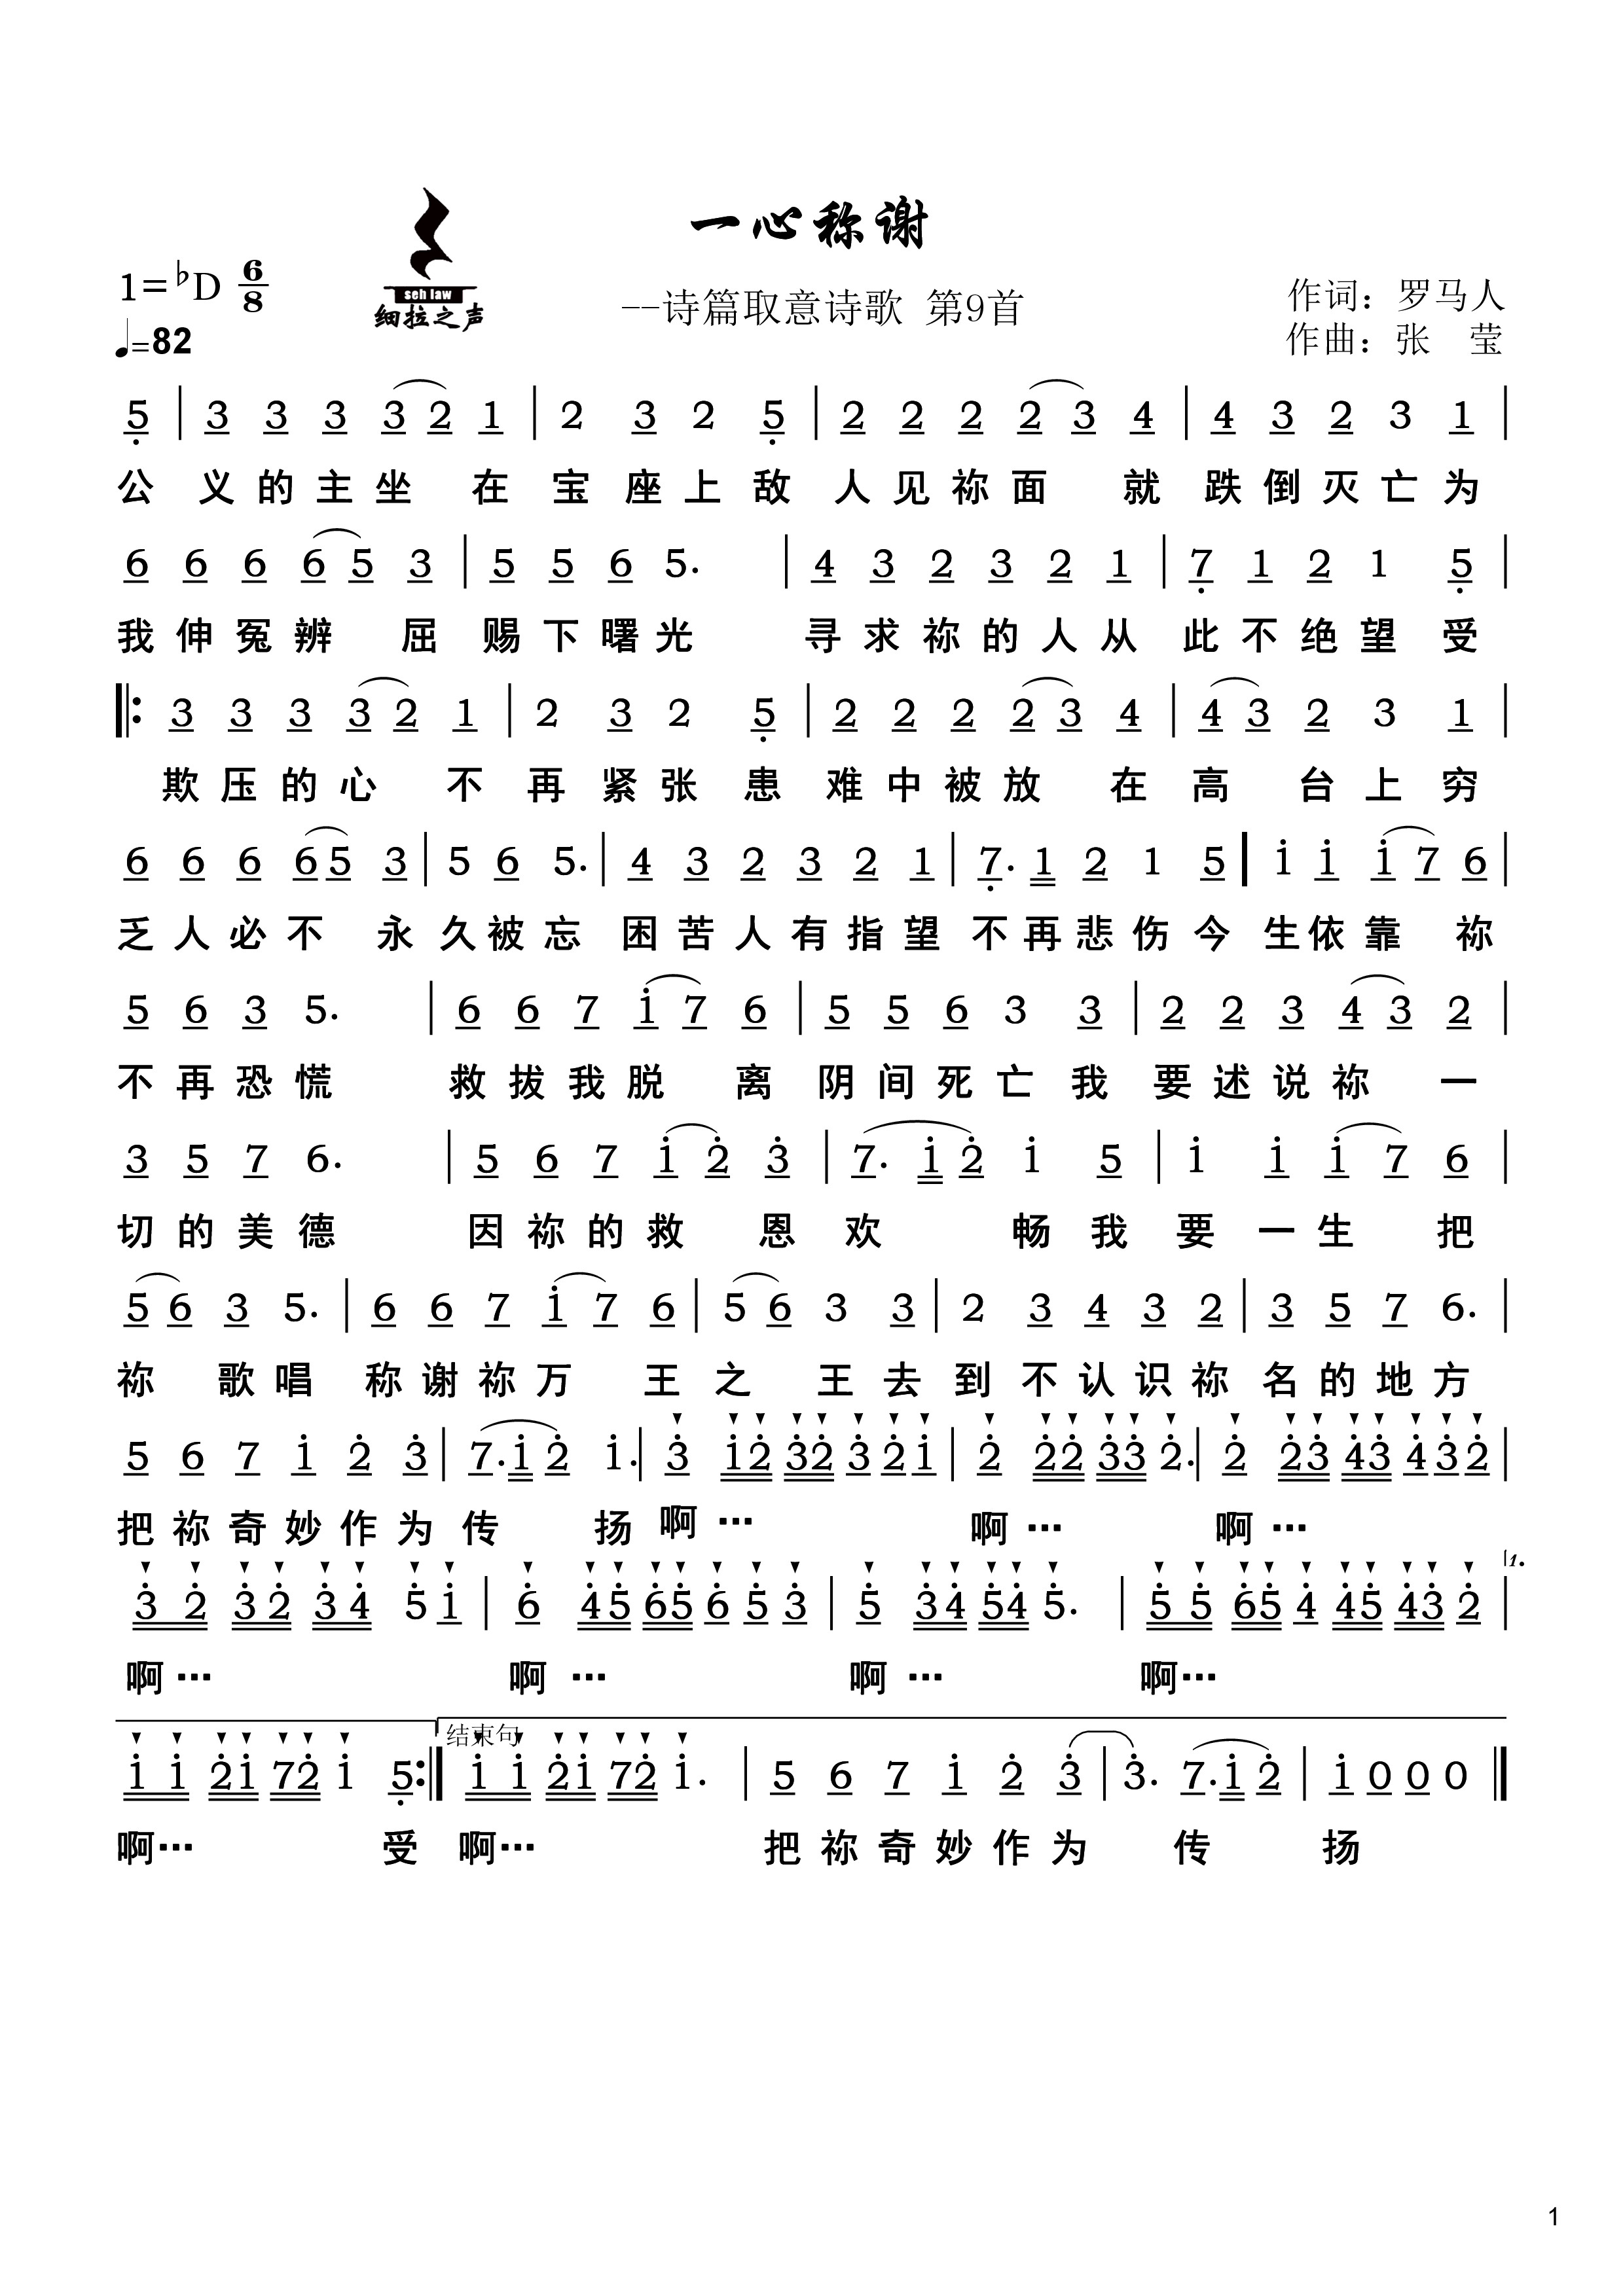 一心称谢
1=♭D 6/8
seh law
细拉之声
--诗篇取意诗歌 第9首
作词：罗马人
♩=82
作曲：张 莹
5̣ | 3 3 3 3 2 1 | 2 3 2 5̣ | 2 2 2 2 3 4 | 4 3 2 3 1 |
公 义 的 主 坐 在 宝 座 上 敌 人 见 祢 面 就 跌 倒 灭 亡 为
6 6 6 6 5 3 | 5 5 6 5. | 4 3 2 3 2 1 | 7̣ 1 2 1 5̣ |
我 伸 冤 辨 屈 赐 下 曙 光 寻 求 祢 的 人 从 此 不 绝 望 受
‖: 3 3 3 3 2 1 | 2 3 2 5̣ | 2 2 2 2 3 4 | 4 3 2 3 1 |
欺 压 的 心 不 再 紧 张 患 难 中 被 放 在 高 台 上 穷
6 6 6 6 5 3 | 5 6 5. | 4 3 2 3 2 1 | 7̣. 1 2 1 5 | i i i 7 6 |
乏 人 必 不 永 久 被 忘 困 苦 人 有 指 望 不 再 悲 伤 今 生 依 靠 祢
5 6 3 5. | 6 6 7 i 7 6 | 5 5 6 3 3 | 2 2 3 4 3 2 |
不 再 恐 慌 救 拔 我 脱 离 阴 间 死 亡 我 要 述 说 祢 一
3 5 7 6. | 5 6 7 i 2̇ 3̇ | 7. i 2̇ i 5 | i i i 7 6 |
切 的 美 德 因 祢 的 救 恩 欢 畅 我 要 一 生 把
5 6 3 5. | 6 6 7 i 7 6 | 5 6 3 3 | 2 3 4 3 2 | 3 5 7 6. |
祢 歌 唱 称 谢 祢 万 王 之 王 去 到 不 认 识 祢 名 的 地 方
5 6 7 i 2̇ 3̇ | 7. i 2̇ i. | 3̇ i 2̇ 3̇ 2̇ 3̇ 2̇ i | 2̇ 2̇ 2̇ 3̇ 3̇ 2̇. | 2̇ 2̇ 3̇ 4̇ 3̇ 4̇ 3̇ 2̇ |
把 祢 奇 妙 作 为 传 扬 啊 … 啊 … 啊 …
3̇ 2̇ 3̇ 2̇ 3̇ 4̇ 5̇ i | 6̇ 4̇ 5̇ 6̇ 5̇ 6̇ 5̇ 3̇ | 5̇ 3̇ 4̇ 5̇ 4̇ 5̇. | 5̇ 5̇ 6̇ 5̇ 4̇ 4̇ 5̇ 4̇ 3̇ 2̇ | 1.
啊 … 啊 … 啊 … 啊…
i i 2̇ i 7 2̇ i 5̣ :‖ 结束句 i i 2̇ i 7 2̇ i. | 5 6 7 i 2̇ 3̇ | 3̇. 7. i 2̇ | i 0 0 0 ‖
啊… 受 啊… 把 祢 奇 妙 作 为 传 扬
1